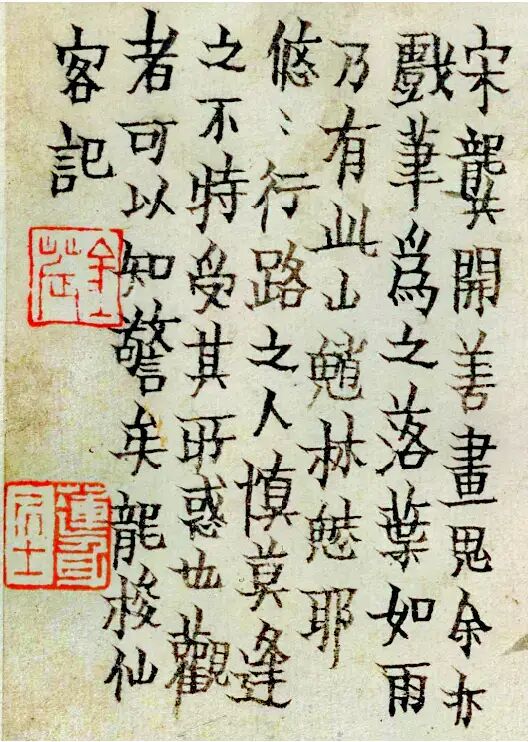 宋龔開善畫鬼余亦
戲筆爲之落葉如雨
乃有此山魈林魅耶
悠〻行路之人慎莫逢
之不特受其所惑也觀
者可以知警矣龍梭仙
客記
蓮身居士